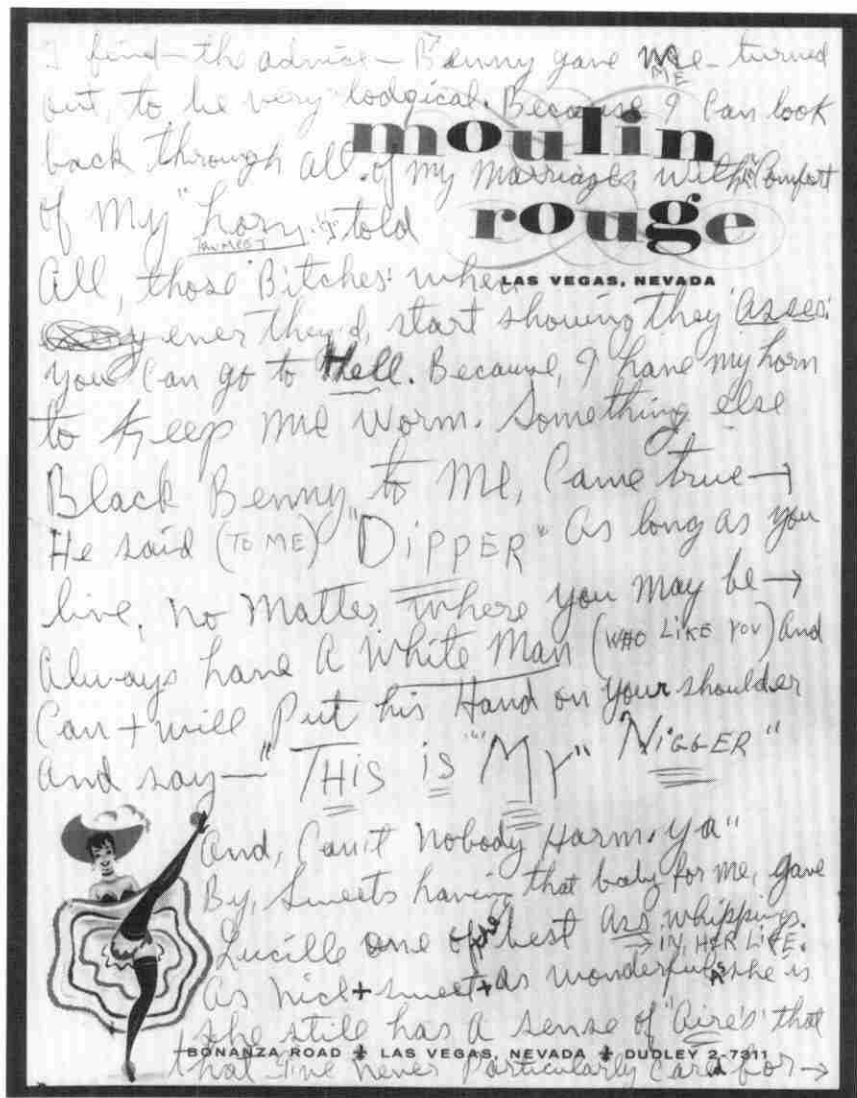 I find—the advice—Benny gave me—turned
ME
out, to be very "lodgical. Because I Can look
moulin
back through all of my marriages, with "Comfort
of My "horn. "I told
TRUMPET
rouge
LAS VEGAS, NEVADA
All, those "Bitches" when
ever they'd, start showing they 'Asses'.
You Can go to Hell. Because, I have my horn
to Keep me Worm. Something else
Black Benny, to Me, Came true→
He said (TO ME) "DiPPER" As long as you
live, no Matter where you may be→
Always have A White Man (WHO LIKE YOU) And
Can + will Put his Hand on your shoulder
And say—"THis is "My" NiGGER"
And, Can't Nobody Harm. Ya"
By, Sweets having that baby for me, gave
Lucille one of the best Ass, whippings.
→ IN HER LIFE.
As Nice + sweet + as wonderful As she is
she stile has A sense of "Aires" that
BONANZA ROAD LAS VEGAS, NEVADA DUDLEY 2-7311
that I've never Particularly Cared for→